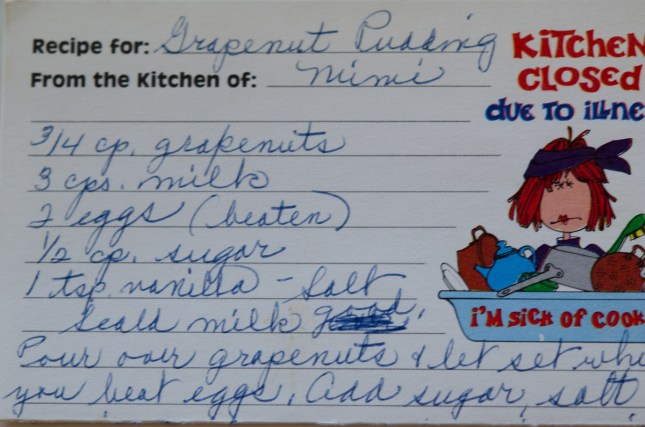 Recipe for: Grapenut Pudding
From the Kitchen of: Mimi
KITCHEN
CLOSED
due to illne
3/4 cp. grapenuts
3 cps. milk
2 eggs (beaten)
1/2 cp. sugar
1 tsp vanilla - Salt
Scald milk good,
i'M SiCK OF COOK
Pour over grapenuts & let set whi
you beat eggs, add sugar, salt